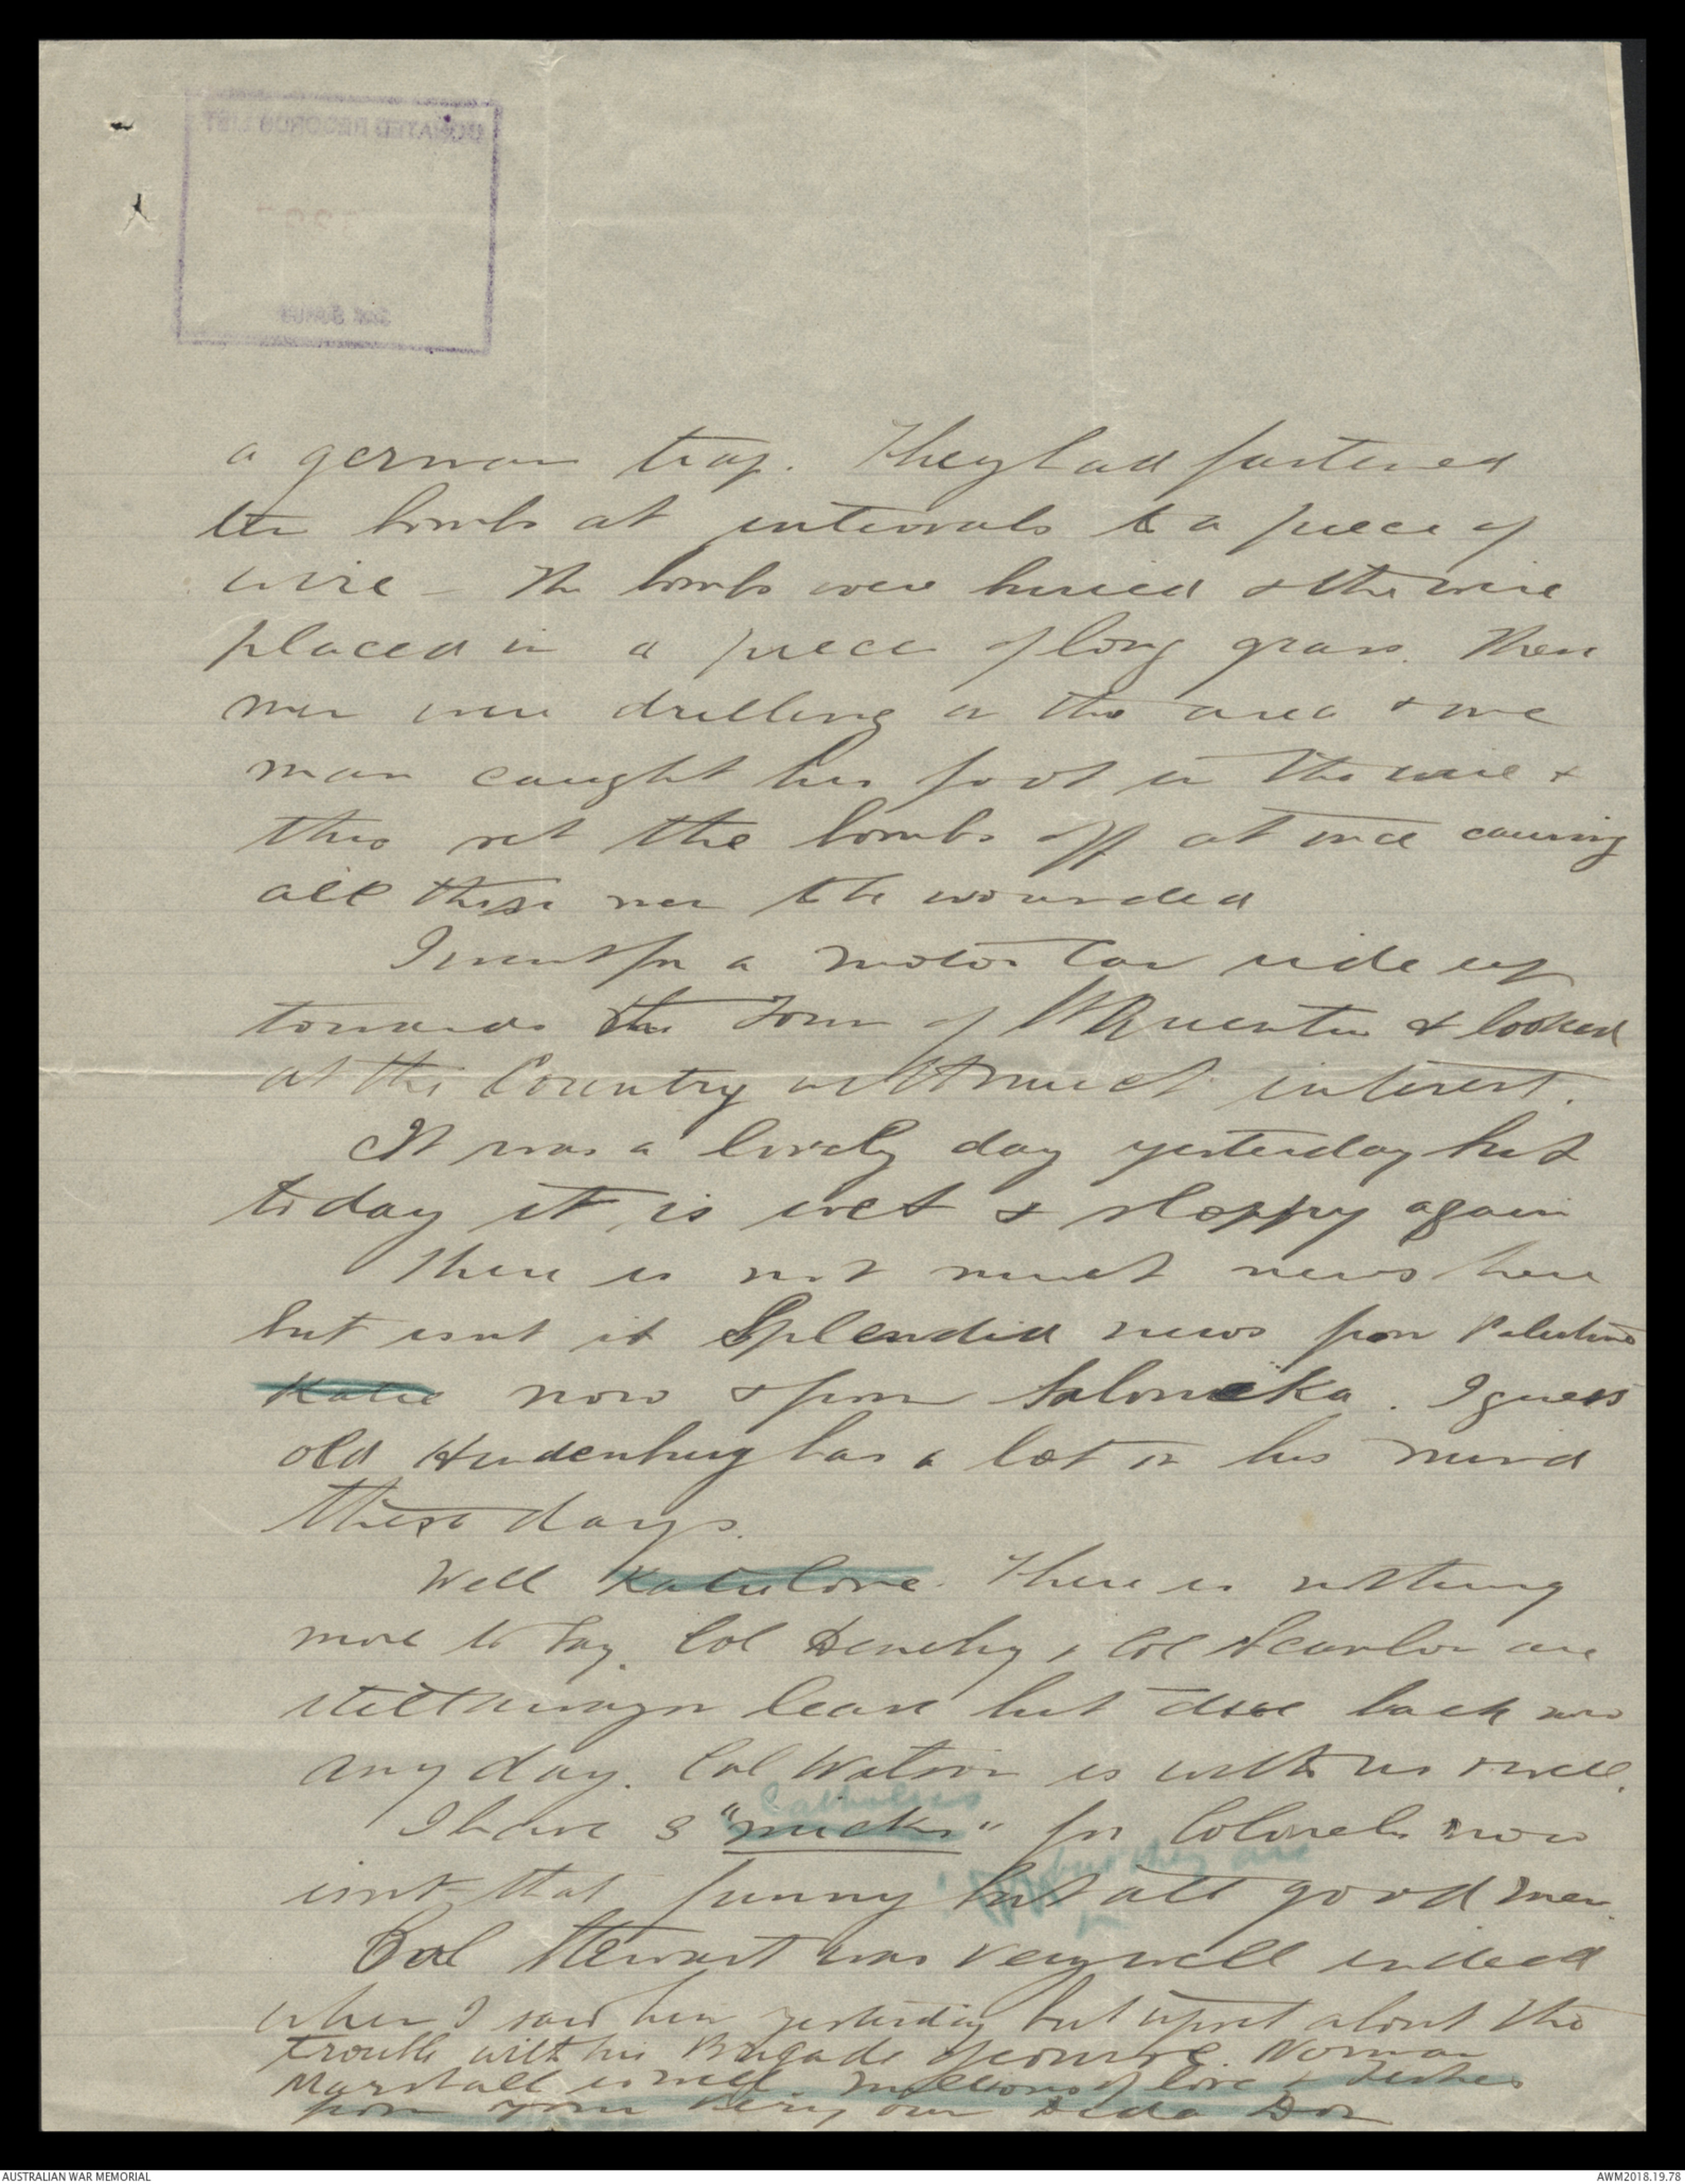 DONATED RECORDS LIST
a german trap. They had fastened
the bombs at intervals to a piece of
wire – The bombs were buried & the wire
placed in a piece of long grass. Then
men were drilling in the area & one
man caught his foot in the wire &
this set the bombs off at once causing
all these men to be wounded
I went for a motor Car ride up
towards the Town of St Quentin & looked
at the Country with much interest.
It was a lovely day yesterday but
today it is wet & sloppy again
There is not much news here
but isnt it Splendid news from Palestine
Katie now & from Salonika. I guess
old Hindenburg has a lot on his mind
these days.
Well Katie love. There is nothing
more to say. Col Denehy & Col Scanlan are
still away on leave but due back now
any day. Col Watson is with us & well.
Catholics
I have 3 "micks" for Colonels now
but they are
isnt that funny but all good men.
Col Stewart was very well indeed
when I saw him yesterday but upset about the
trouble with his Brigade of course. Norman
Marshall is well. Millions of love & kisses
from your very own